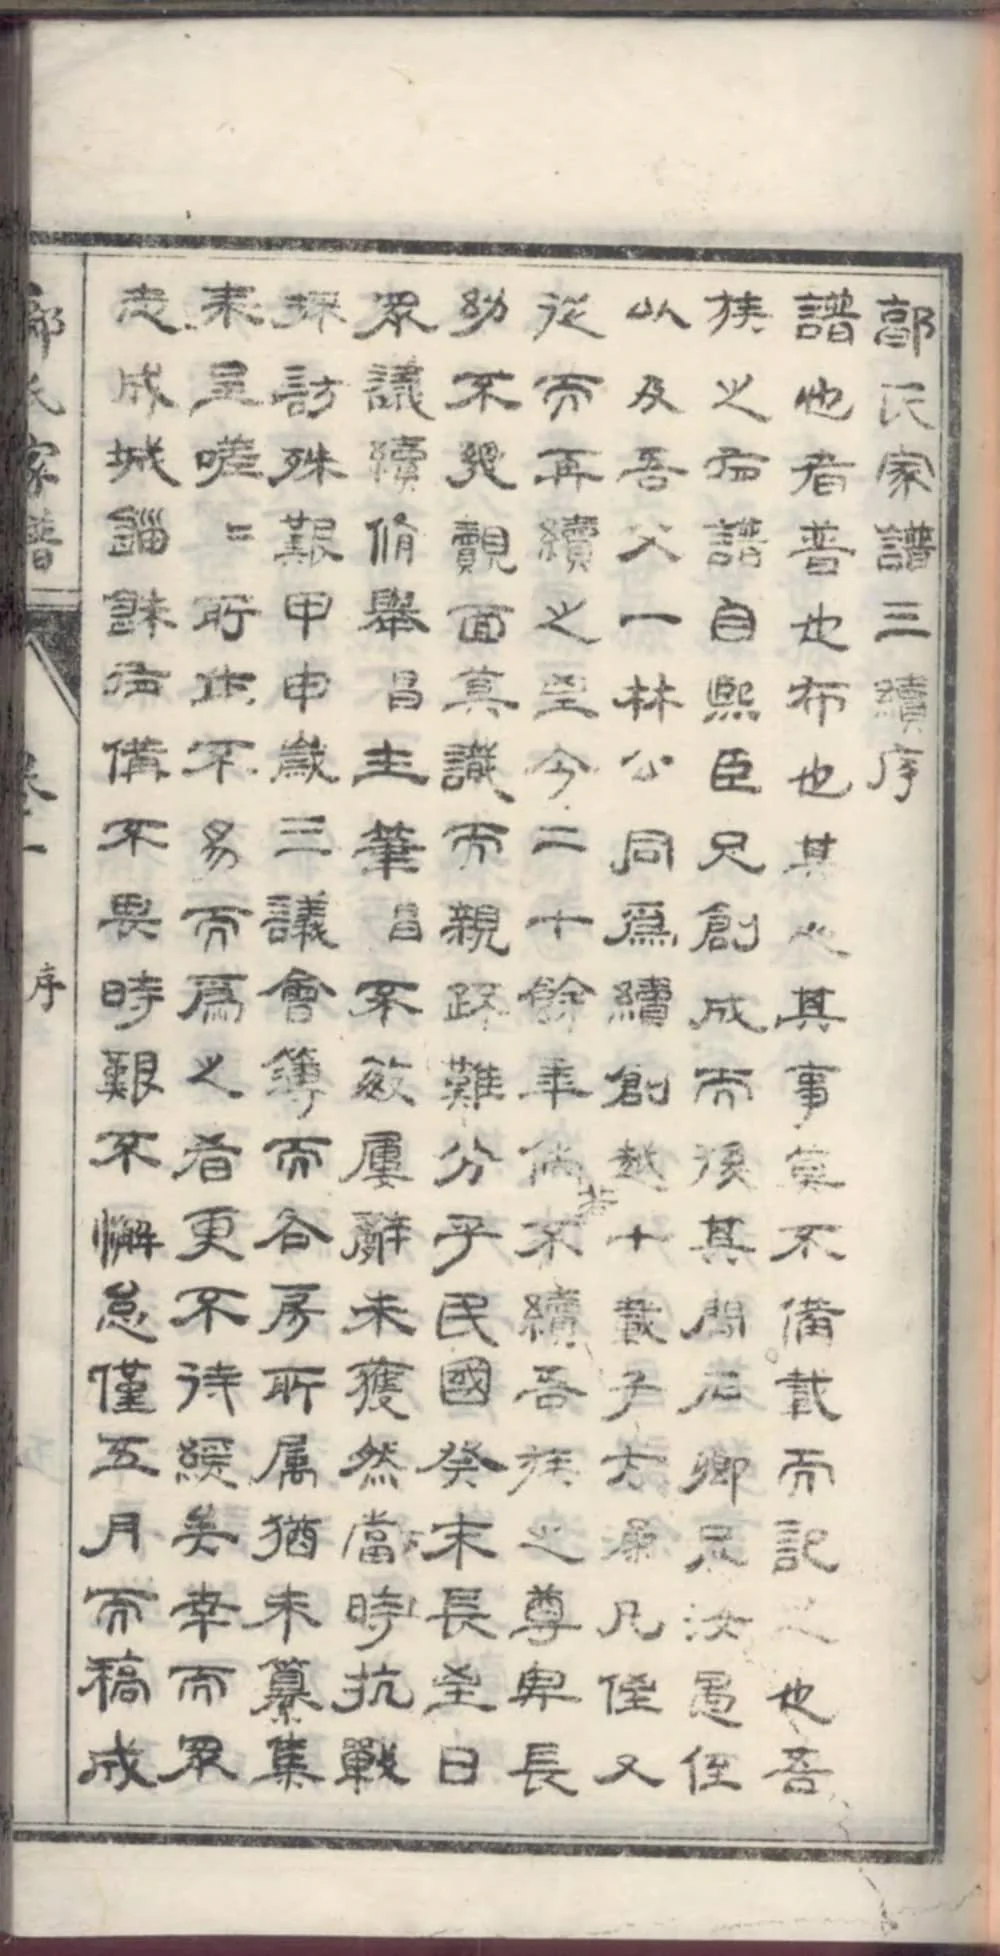 郭氏家譜三續序
譜也者普也布也其人其事莫不備載而記之也吾
族之有譜自熙臣兄創成而後其間石卿兄汝愚侄
以及吾父一林公同爲續創越十載子方源凡侄又
從而再續之至今二十餘年倘不續吾族之尊卑長
幼不幾覿面莫識而親踈難分乎民國癸未長至日
眾議續脩舉昌主筆昌不敏屢辭未獲然當時抗戰
採訪殊艱甲申歲三議會簿而各房所属猶未纂集
来呈嗟二所非不易而爲之者更不待緩矣幸而眾
志成城錙銖有備不畏時艱不懈怠僅五月而稿成
郭氏家譜
卷一
序